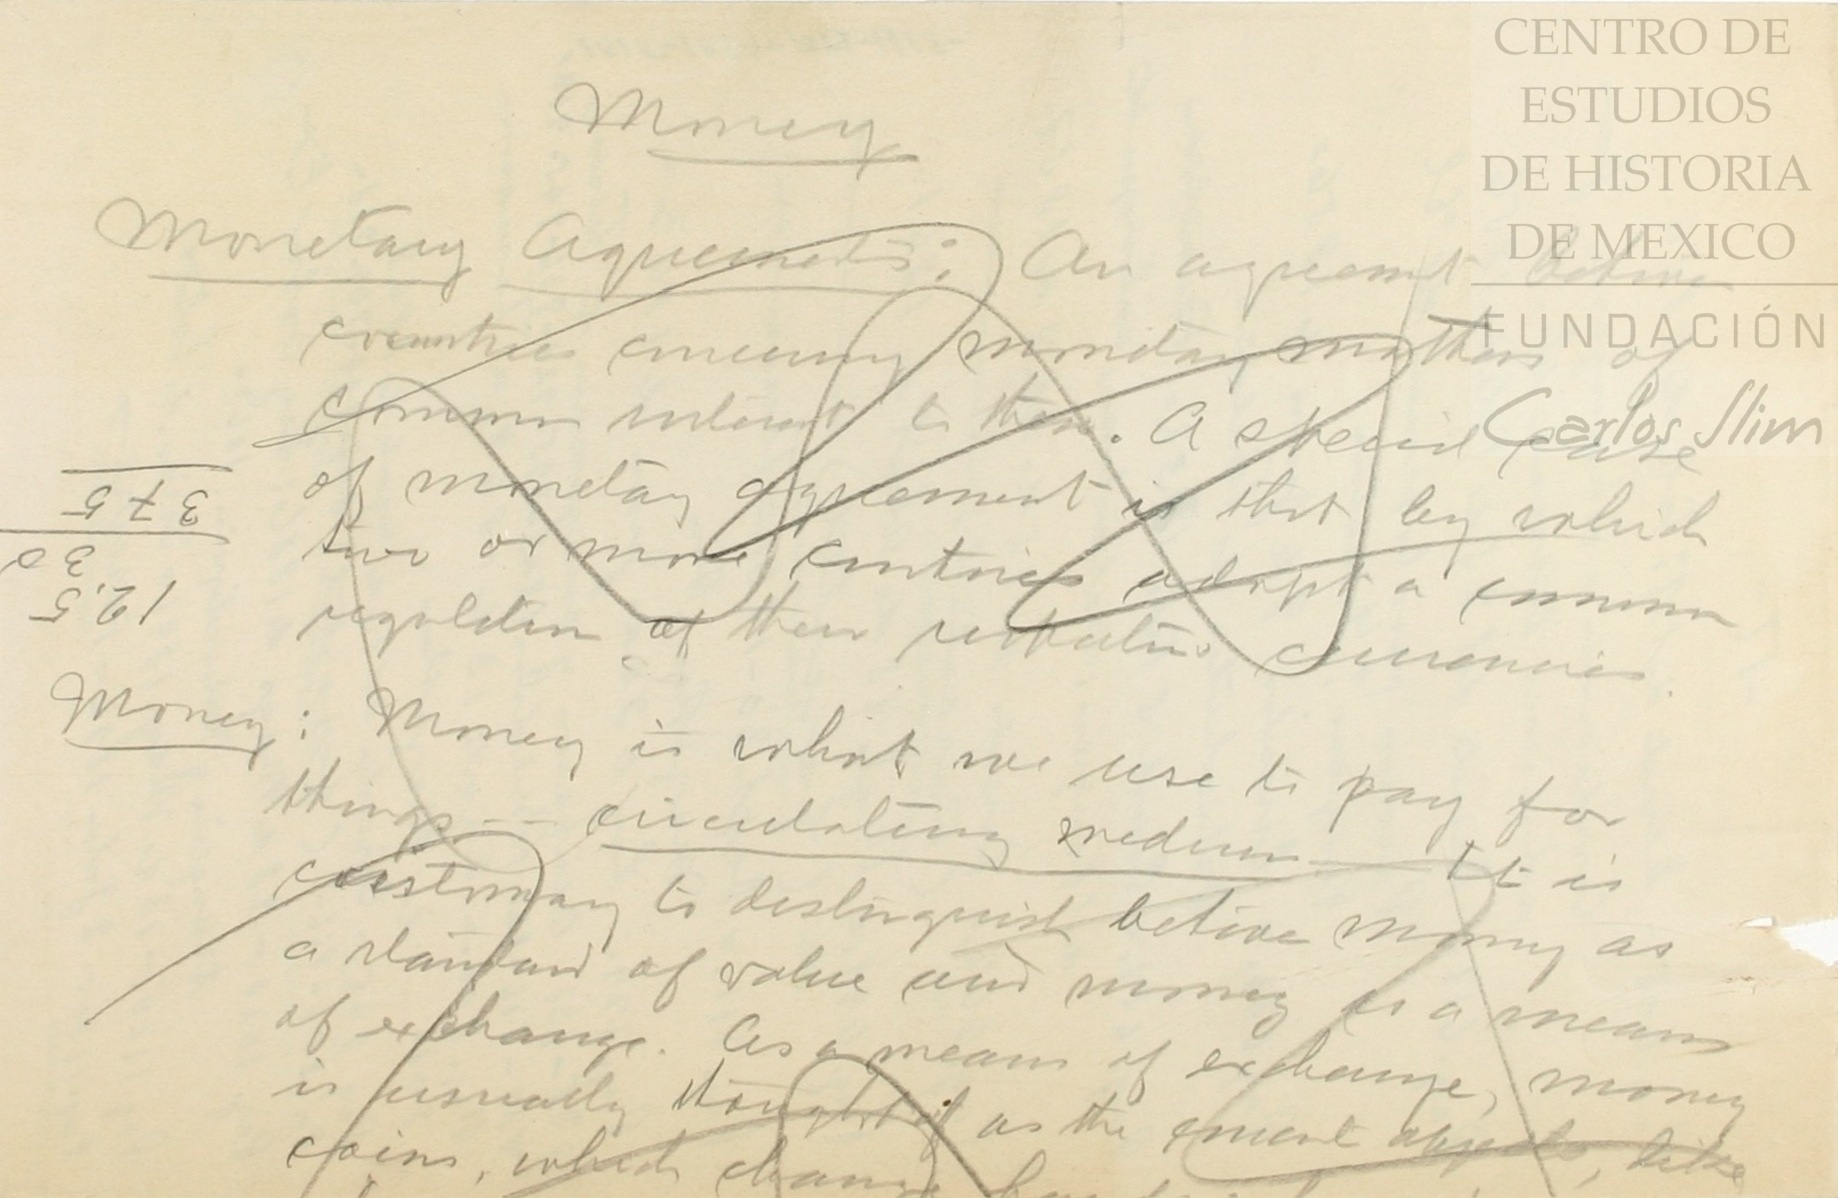 Money
Monetary Agreements: An agreement between
countries concerning monetary matters of
common interest to them. A special case
of monetary agreement is that by which
two or more contries adopt a common
regulation of their respective currencies.
375
30
12.5
Money: Money is what we use to pay for
things -- circulating medium It is
customary to distinguish between money as
a standard of value and money as a means
of exchange. As a means of exchange, money
is usually thought of as the objects, like
coins, which change
CENTRO DE
ESTUDIOS
DE HISTORIA
DE MEXICO
FUNDACIÓN
Carlos Slim